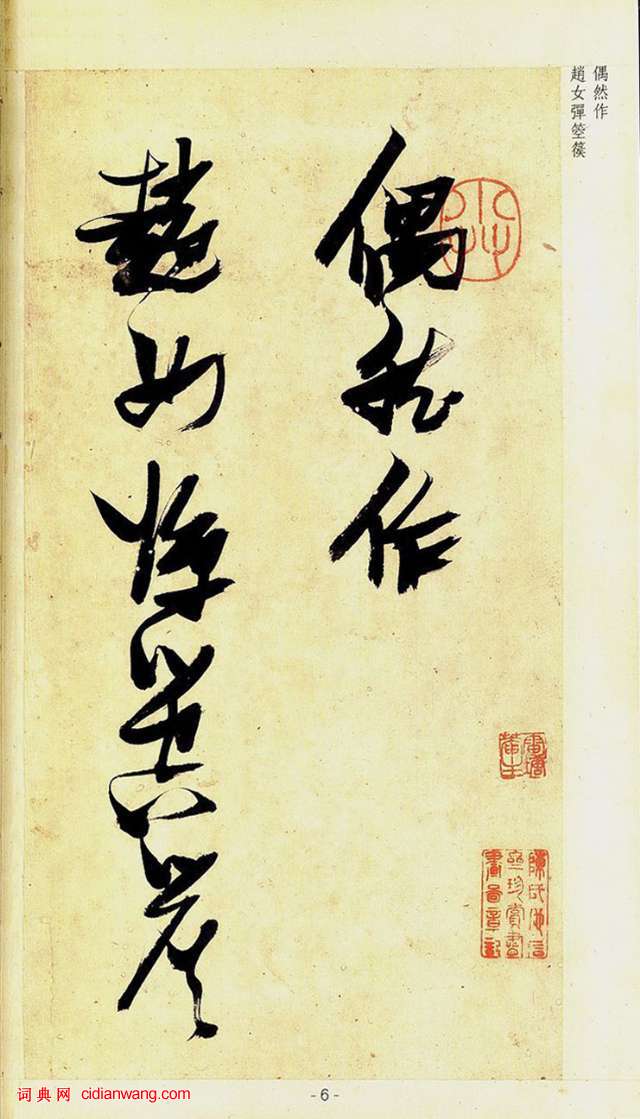 偶然作
趙女彈箜篌
偶然作
趙女彈箜篌
词典网 cidianwang.com
- 6 -